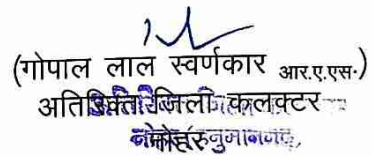 (गोपाल लाल स्वर्णकार आर.ए.एस.)
अतिरिक्त जिला कलक्टर
नोहर हनुमानगढ़